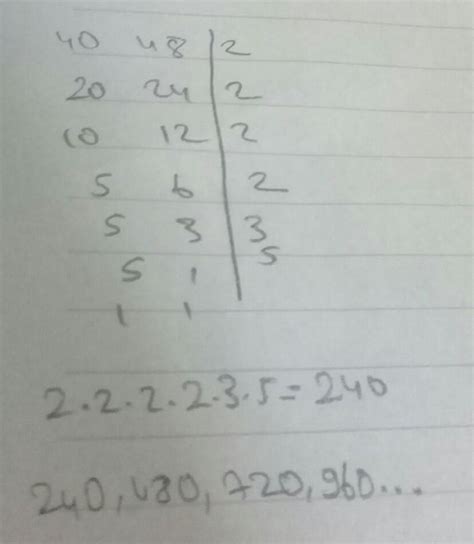 40 48 | 2
20 24 | 2
10 12 | 2
5 6 | 2
5 3 | 3
5 1 | 5
1 1
2.2.2.2.3.5=240
240, 480, 720, 960...